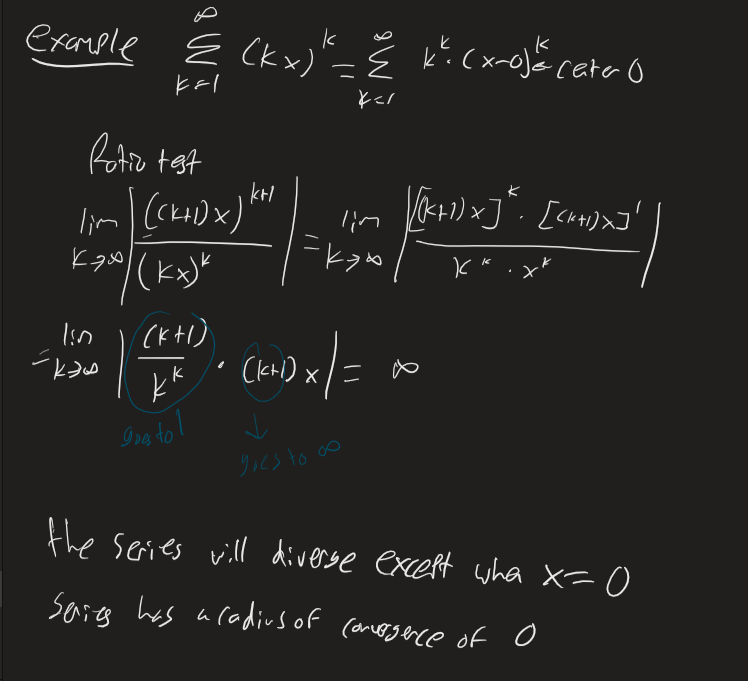 Example ∑_{k=1}^{∞} (kx)^k = ∑_{k=1}^{∞} k^k · (x-0)^k ← center 0
Ratio test
lim_{k→∞} |((k+1)x)^{k+1} / (kx)^k| = lim_{k→∞} |[(k+1)x]^k · [(k+1)x]^1 / k^k · x^k|
= lim_{k→∞} |(k+1) / k^k · (k+1) x| = ∞
goes to 1
↓
goes to ∞
the series will diverge except when x = 0
Series has a radius of convergence of 0